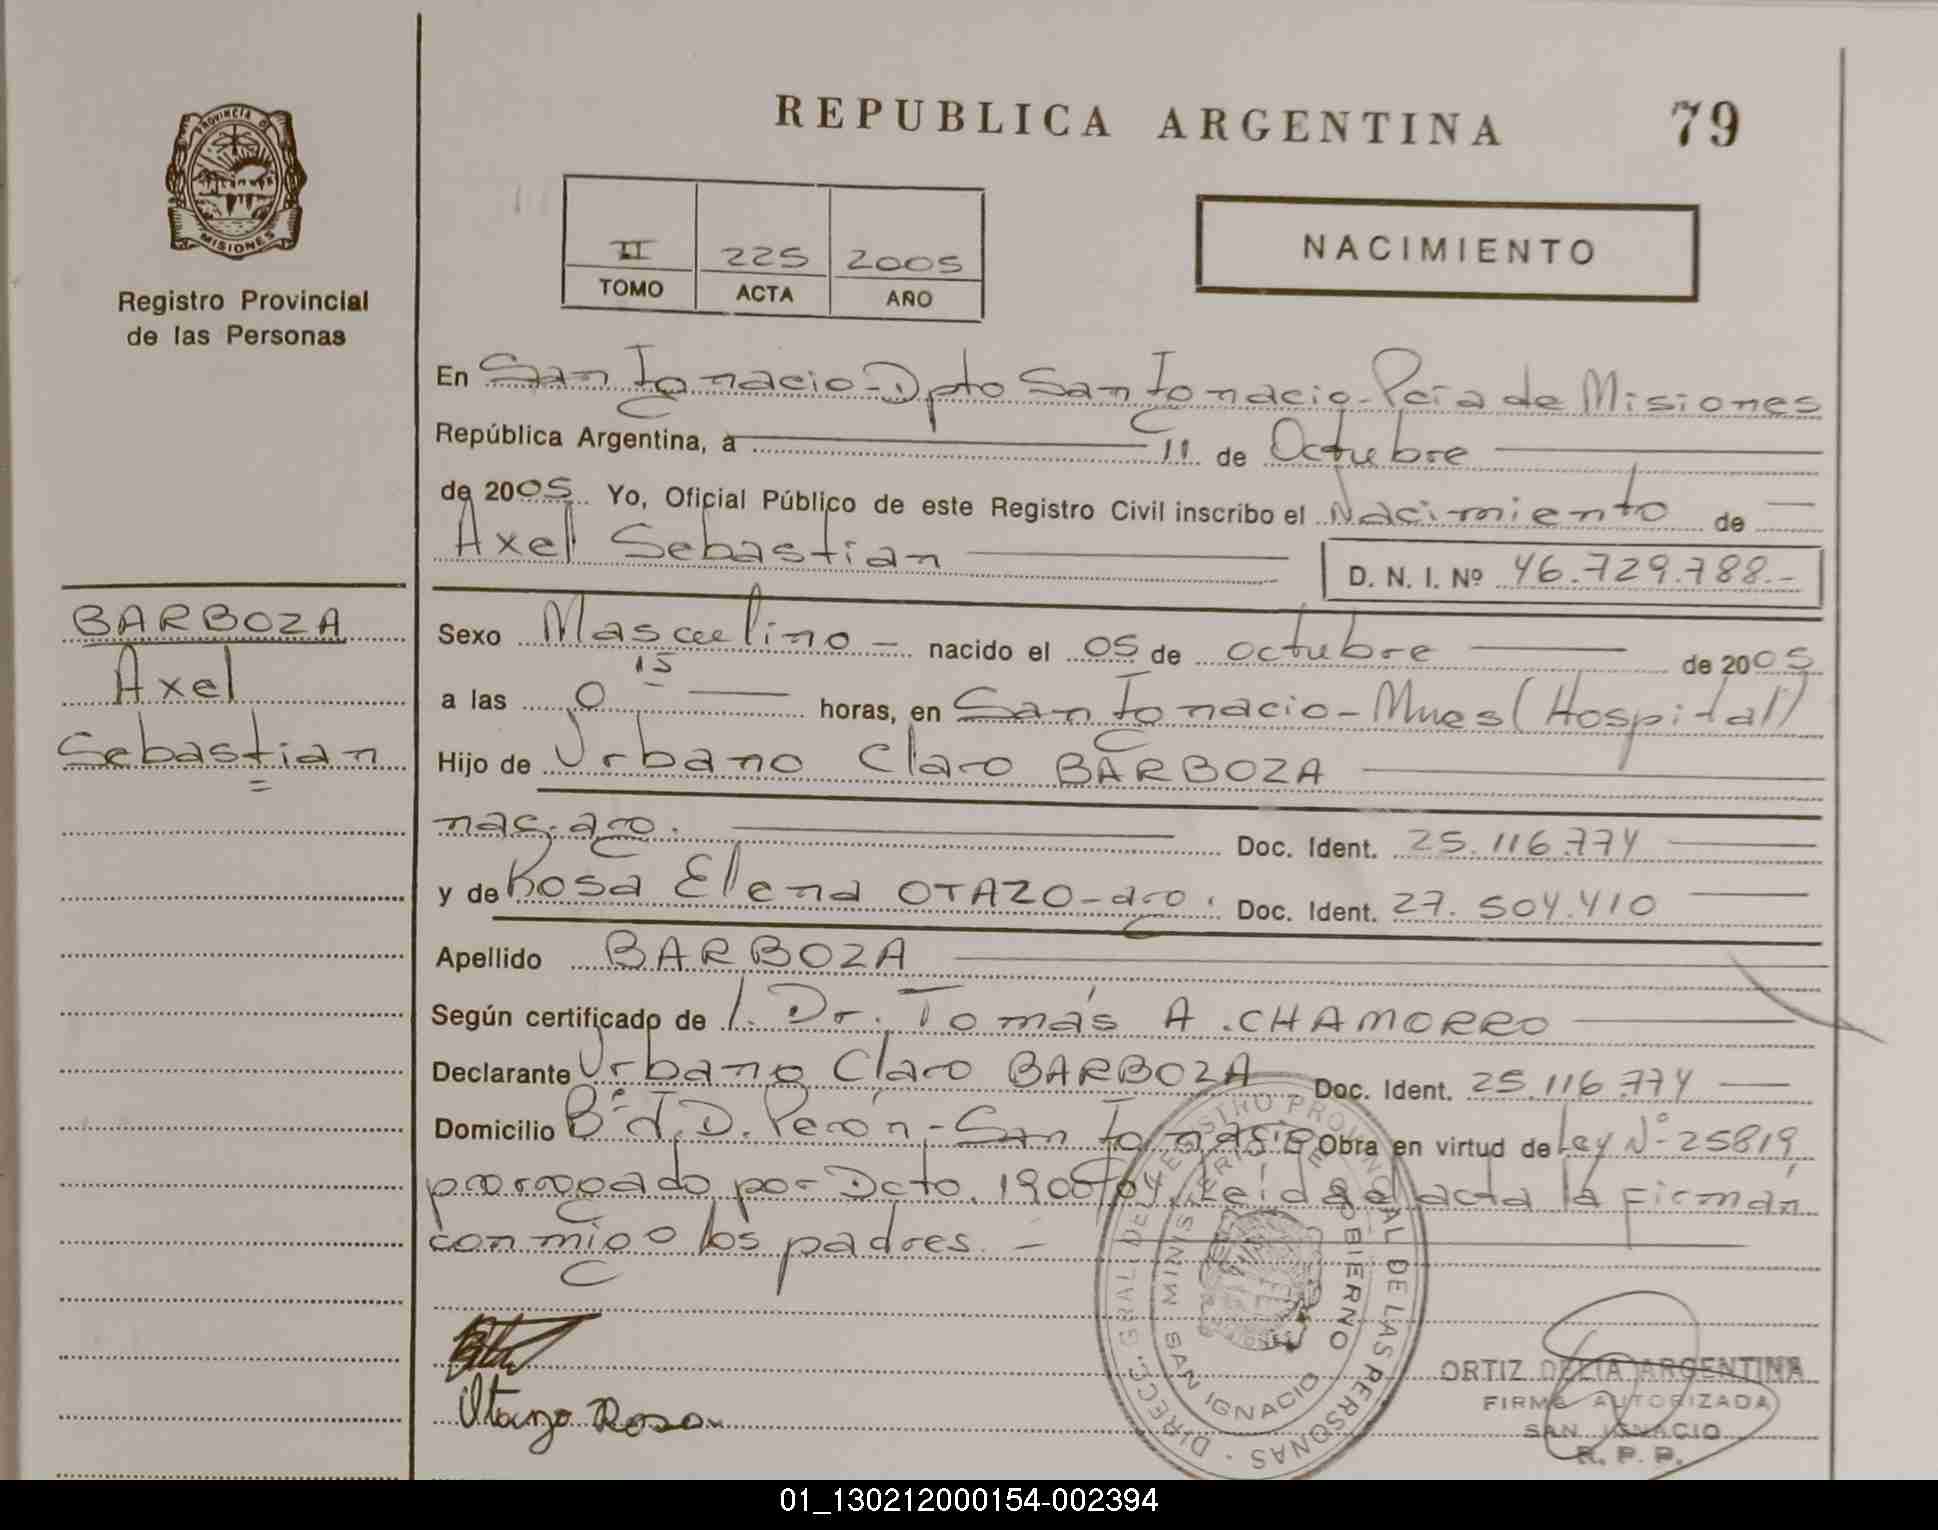 REPUBLICA ARGENTINA
79
PROVINCIA DE
MISIONES
Registro Provincial
de las Personas
II 225 2005
TOMO ACTA AÑO
NACIMIENTO
En San Ignacio - Dpto San Ignacio - Pcia de Misiones
República Argentina, a 11 de Octubre
de 2005 Yo, Oficial Público de este Registro Civil inscribo el Nacimiento de
Axel Sebastian
D. N. I. Nº 46.729.788.-
BARBOZA
Axel
Sebastian
Sexo Masculino - nacido el 05 de octubre de 2005
a las 0 15 horas, en San Ignacio - Mnes (Hospital)
Hijo de Urbano Claro BARBOZA
nac. arg. Doc. Ident. 25.116.774
y de Rosa Elena OTAZO - arg. Doc. Ident. 27.504.410
Apellido BARBOZA
Según certificado de 1. Dr. Tomás A. CHAMORRO
Declarante Urbano Claro BARBOZA Doc. Ident. 25.116.774
Domicilio Bº J. D. Perón - San Ignacio Obra en virtud de Ley Nº 25819,
prorrogado por Dcto. 1900/04. Leída el acta la firman
conmigo los padres. -
Otazo Rosa
DIRECC. GRAL. DEL REGISTRO PROVINCIAL DE LAS PERSONAS
MINISTERIO DE GOBIERNO
SAN IGNACIO
ORTIZ DELIA ARGENTINA
FIRMA AUTORIZADA
SAN IGNACIO
R. P. P.
01_130212000154-002394